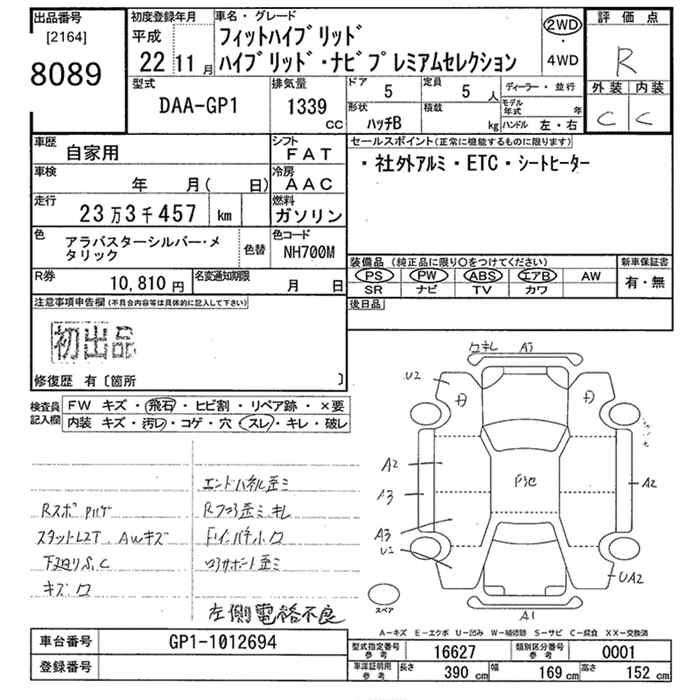 出品番号
[2164]
8089
初度登録年月
平成
22 11月
車名・グレード
フィットハイブリッド
ハイブリッド・ナビプレミアムセレクション
2WD
・
4WD
評価点
R
外装 内装
C C
型式
DAA-GP1
排気量
1339
CC
ドア
5
定員
5 人
形状
ハッチB
積載
kg
ディーラー・並行
モデル年式 年
ハンドル 左・右
車歴
自家用
シフト
FAT
車検
年 月( 日)
冷房
AAC
走行
23万3千457 km
燃料
ガソリン
色
アラバスターシルバー・メ
タリック
色替
色コード
NH700M
R券
10,810円
名変通知期限
月 日
セールスポイント(正常に機能するものに限ります)
・社外アルミ・ETC・シートヒーター
装備品(純正品に限り○をつけてください)
PS PW ABS エアB AW
SR ナビ TV カワ
新車保証書
有・無
後日品
注意事項申告欄(不具合内容等は具体的に記入して下さい)
初出品
修復歴 有〔箇所 〕
検査員
記入欄
FW キズ・飛石・ヒビ割・リペア跡・×要
内装 キズ・汚レ・コゲ・穴・スレ・キレ・破レ
エンドパネル歪ミ
キズ
左側電格不良
ワキレ A3
U2
A2
A3
A3
A2
UA2
A1
スペア
A-キズ E-エクボ U-凹み W-補修跡 S-サビ C-腐食 XX-交換済
車台番号
GP1-1012694
登録番号
型式指定番号
参考
16627
類別区分番号
参考
0001
車庫証明用
参考
長さ 390 cm
幅 169 cm
高さ 152 cm